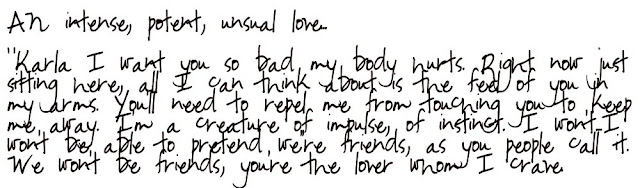 An intense, potent, unsual love.
"Karla I want you so bad my body hurts. Right now just
sitting here, all I can think about is the feel of you in
my arms. You'll need to repel me from touching you to keep
me away. I'm a creature of impulse, of instinct. I wont I
wont be able to pretend, we're friends, as you people call it.
We wont be friends, youre the lover whom I crave.